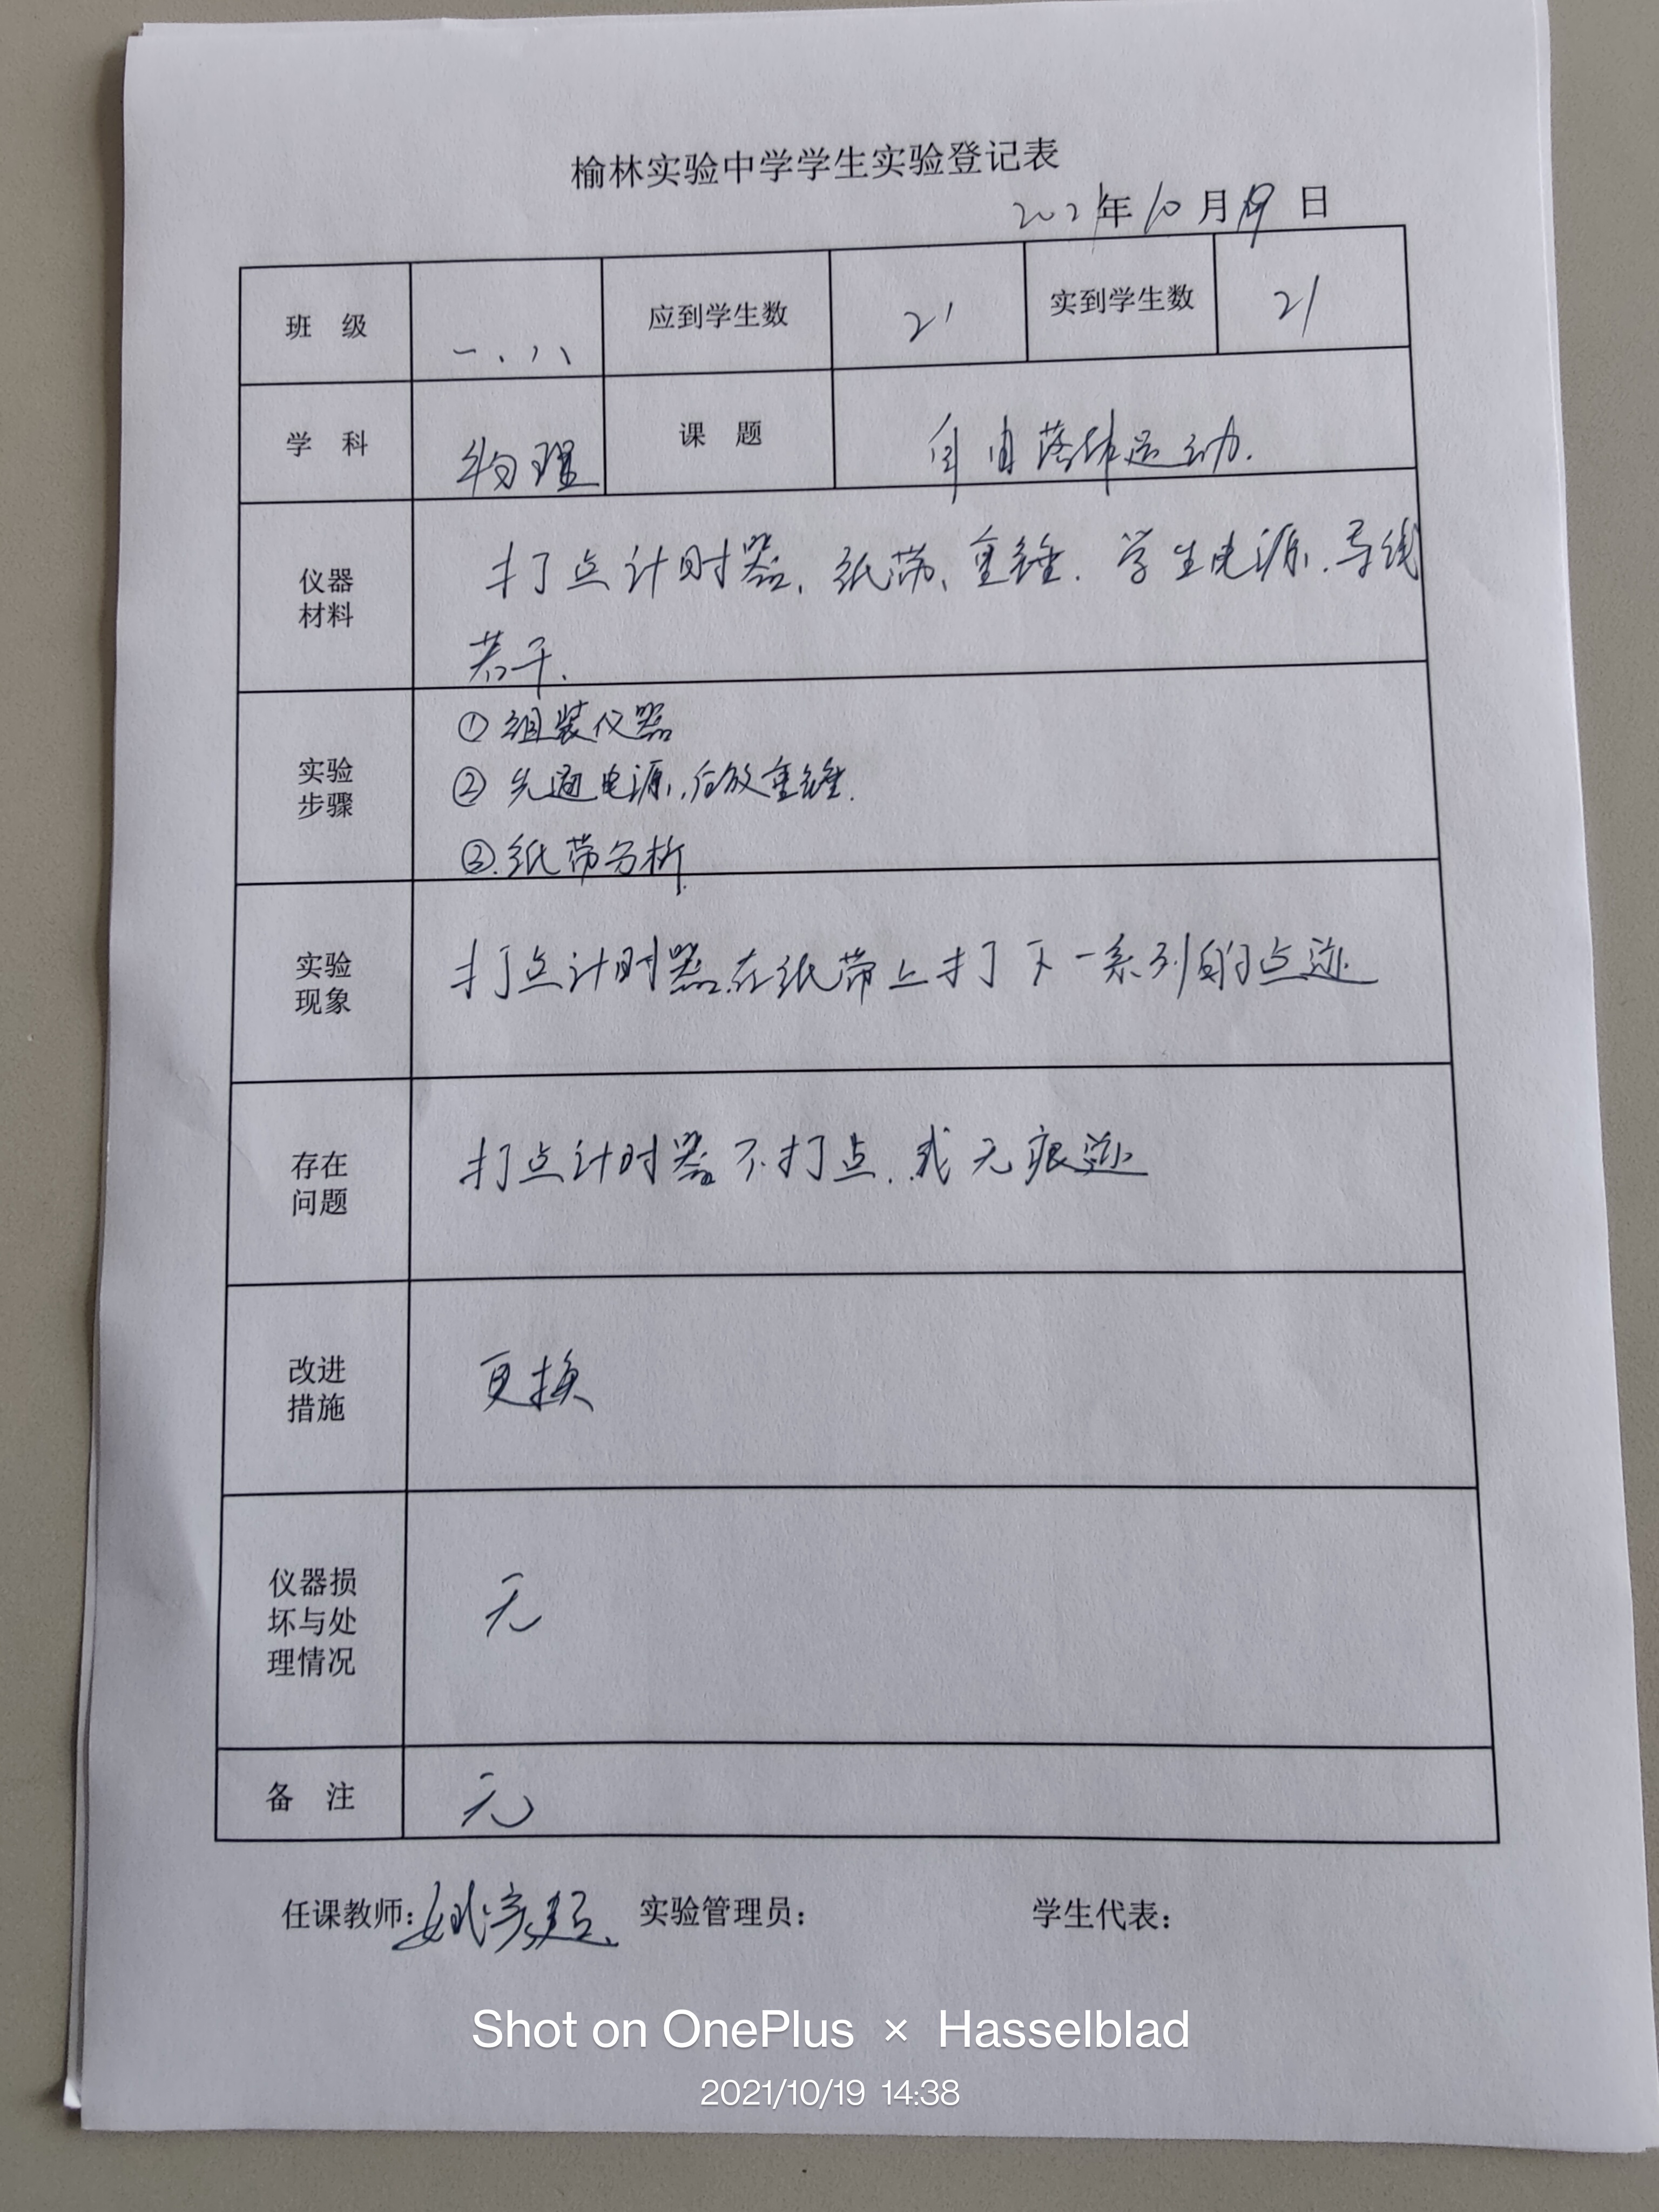 榆林实验中学学生实验登记表
2021年10月19日
班 级 一.八 应到学生数 21 实到学生数 21
学 科 物理 课 题 自由落体运动.
仪器材料 打点计时器、纸带、重锤.学生电源.导线
若干.
实验步骤 ①组装仪器
②先通电源,后放重锤.
③.纸带分析.
实验现象 打点计时器在纸带上打下一系列的点迹
存在问题 打点计时器不打点.或无痕迹
改进措施 更换
仪器损坏与处理情况 无
备 注 无
任课教师: 实验管理员: 学生代表:
Shot on OnePlus × Hasselblad
2021/10/19 14:38